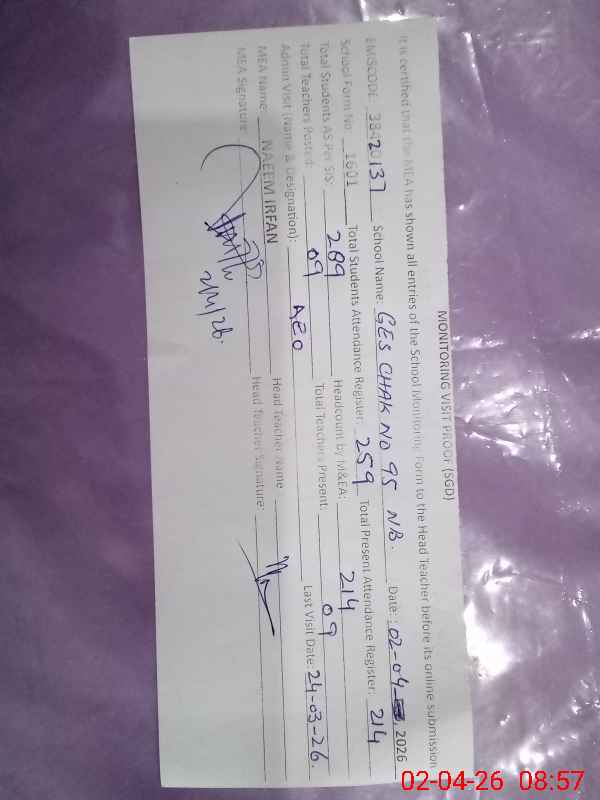 MONITORING VISIT PROOF (SGD)
It is certified that the MEA has shown all entries of the School Monitoring Form to the Head Teacher before its online submission
EMISCODE: 38420137 School Name: GES CHAK NO 95 NB. Date: 02-04-, 2026
School Form No: 1601 Total Students Attendance Register: 259 Total Present Attendance Register: 214
Total Students AS Per SIS: 289 Headcount by M&EA: 214
Total Teachers Posted: 09 Total Teachers Present: 09 Last Visit Date: 24-03-26.
Admin Visit (Name & Designation): AEO
MEA Name: NAEEM IRFAN Head Teacher Name
MEA Signature: Head Teacher Signature:
2/4/26.
02-04-26 08:57